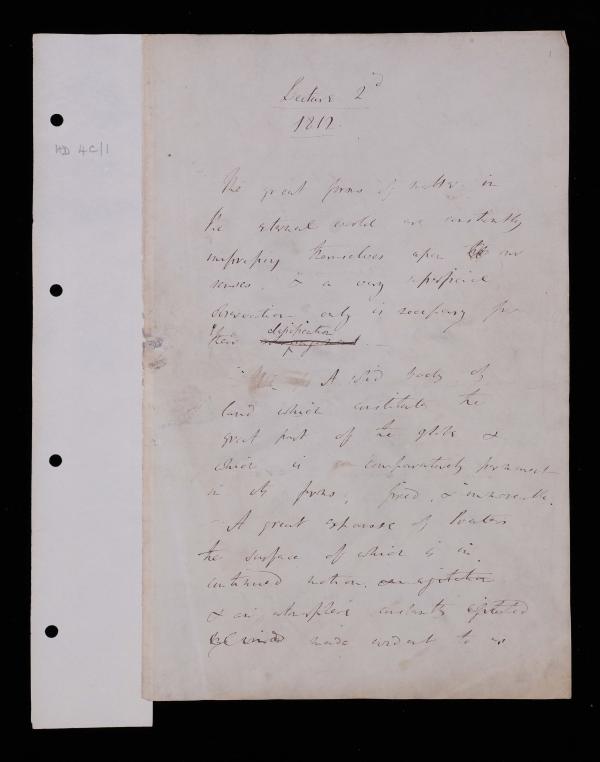 HD 4C/1
1
Lecture 2d
1812.
The great forms of matter in
the external world are constantly
impressing themselves upon our
senses, & a very superficial
observation only is necessary for
their classification
A solid body of
land which constitutes the
great part of the globe &
which is comparatively permanent
in its forms, fixed, & immoveable.
A great expanse of waters
the surface of which is in
continued motion, agitation
& an atmosphere constantly agitated
made evident to us